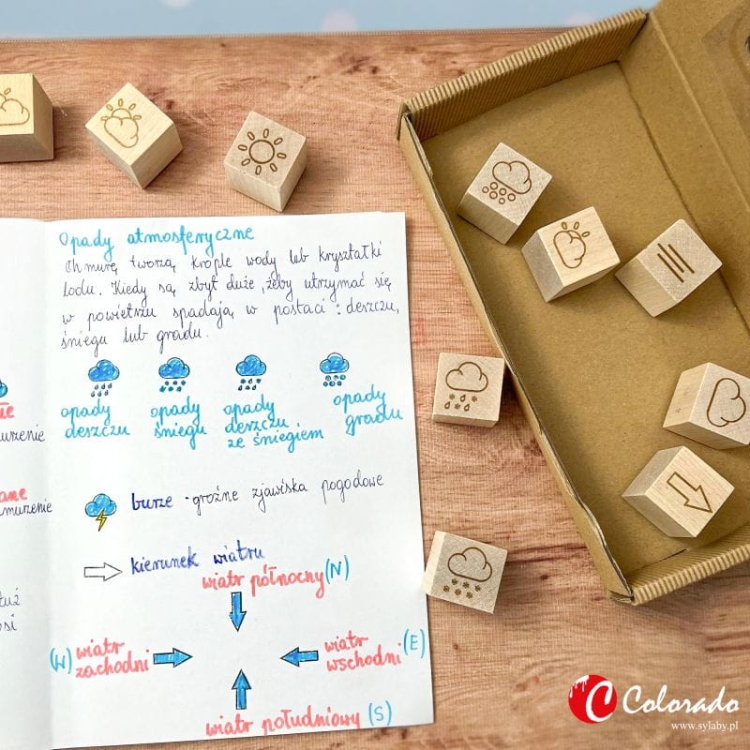 Opady atmosferyczne
Chmurę tworzą krople wody lub kryształki
lodu. Kiedy są zbyt duże, żeby utrzymać się
w powietrzu spadają w postaci: deszczu,
śniegu lub gradu.
opady deszczu
opady śniegu
opady deszczu ze śniegiem
opady gradu
burze - groźne zjawiska pogodowe
kierunek wiatru
wiatr północny (N)
(W) wiatr zachodni
wiatr wschodni (E)
wiatr południowy (S)
Colorado
www.sylaby.pl